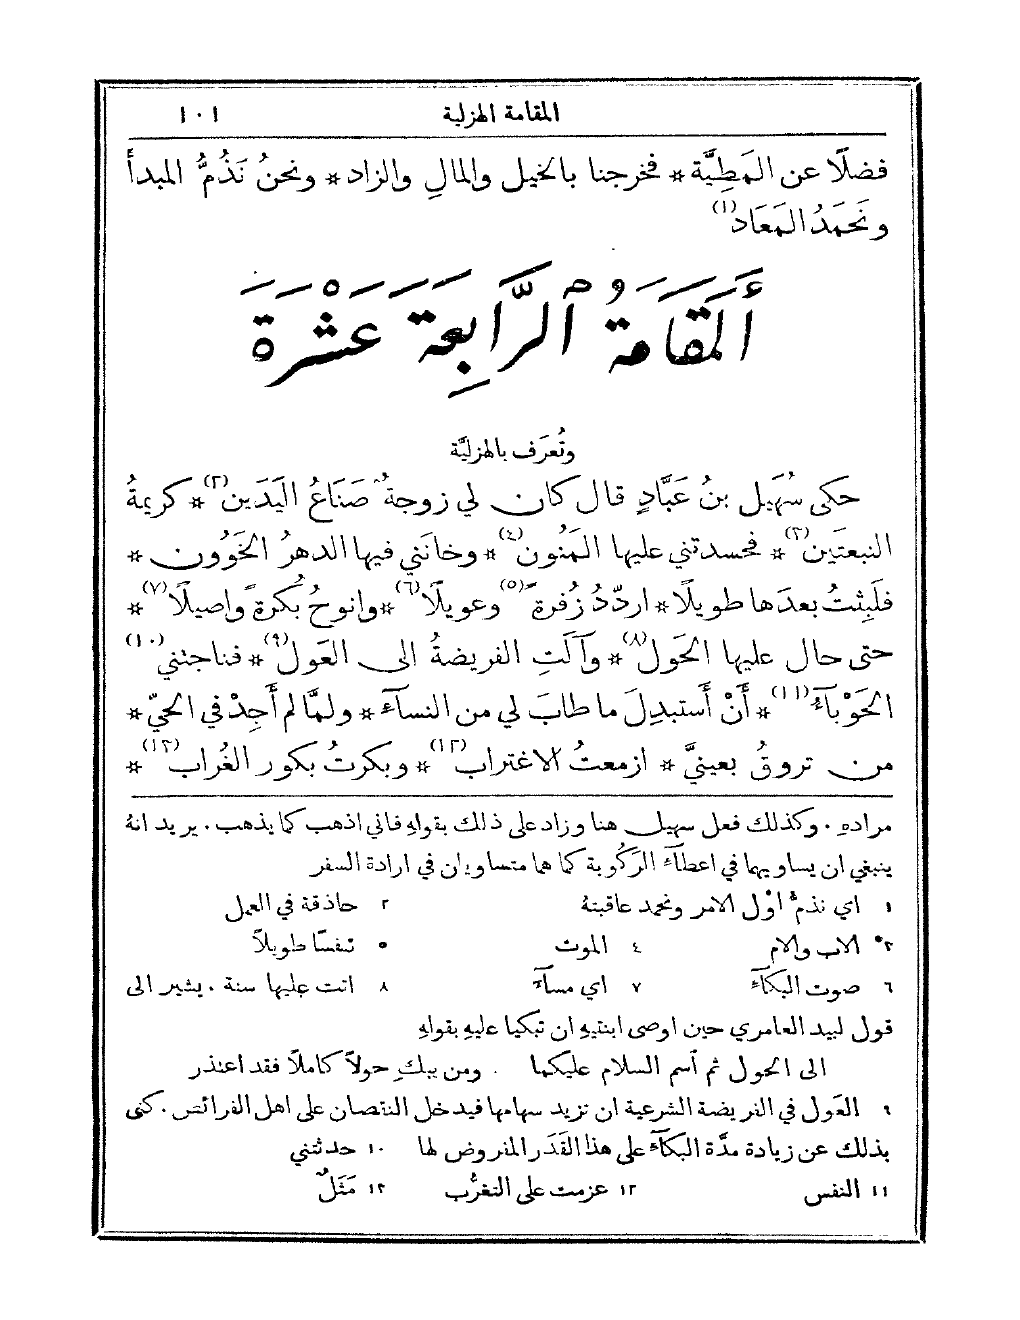 المقامة الهزلية ١٠١
فضلًا عن المَطِيَّة * فخرجنا بالخيل والمالِ والزاد * ونحنُ نَذُمُّ المبدأَ
ونَحمَدُ المَعَاد(١)
أَلمَقَامَةُ ٱلرَّابِعَةَ عَشْرَةَ
وتُعرَف بالهزليَّة
حكى سُهَيل بنُ عَبَّادٍ قال كان لي زوجةٌ صَنَاعُ اليَدَين(٢) * كريمةُ
النبعتَين(٣) * فحسدتني عليها المَنُون(٤) * وخانَني فيها الدهرُ الخَوُون *
فلَبِثتُ بعدَها طويلًا * اردّدُ زفرةً(٥) وعويلًا(٦) * وانوحُ بُكرةً واصيلًا(٧) *
حتى حال عليها الحَول(٨) * وآلَتِ الفريضةُ الى العَول(٩) * فناجتني(١٠)
الحَوْبآءُ(١١) * أَنْ أَستبدِلَ ما طابَ لي من النسآءِ * ولمَّا لم أَجِدْ في الحيّ *
من تروقُ بعينيَّ * ازمعتُ الاغتراب(١٢) * وبكرتُ بكور الغُراب(١٣) *
مرادهِ . وكذلك فعل سهيل هنا وزاد على ذلك بقولهِ فاني اذهب كما يذهب . يريد انهُ
ينبغي ان يساويهما في اعطآءِ الرَكُوبة كما هما متساويان في ارادة السفر
١ اي نذم اوّل الامر ونحمد عاقبتهُ ٢ حاذقة في العمل
٣ الاب والام ٤ الموت ٥ تنفسًا طويلًا
٦ صوت البكآءِ ٧ اي مسآءً ٨ اتت عليها سنة . يشير الى
قول لبيد العامري حين اوصى ابنتيهِ ان تبكيا عليهِ بقولهِ
الى الحول ثم اسم السلام عليكما . ومن يبكِ حولًا كاملًا فقد اعتذر
٩ العَول في الفريضة الشرعية ان تزيد سهامها فيدخل النقصان على اهل الفرائض . كنى
بذلك عن زيادة مدَّة البكآءِ على هذا القَدَر المفروض لها ١٠ حدثتني
١١ النفس ١٢ عزمت على التغرُّب ١٣ مَثَلٌ